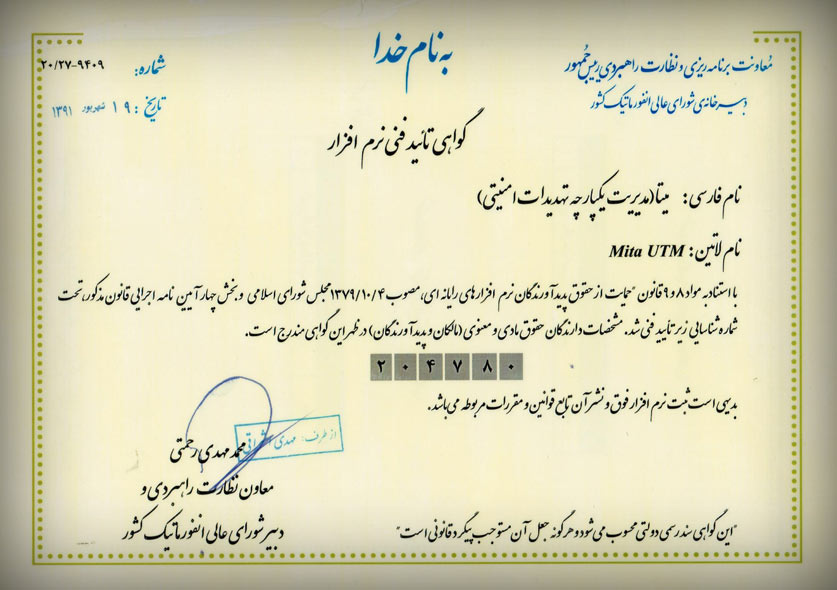 به نام خدا
معاونت برنامه ریزی و نظارت راهبردی رییس جمهور
دبیرخانه‌ی شورای عالی انفورماتیک کشور
شماره: ۲۰/۲۷-۹۴۰۹
تاریخ: ۱۹ شهریور ۱۳۹۱
گواهی تائید فنی نرم افزار
نام فارسی: میتا (مدیریت یکپارچه تهدیدات امنیتی)
نام لاتین: Mita UTM
با استناد به مواد ۸ و ۹ قانون "حمایت از حقوق پدیدآورندگان نرم افزارهای رایانه ای، مصوب ۱۳۷۹/۱۰/۴ مجلس شورای اسلامی و بخش چهار آیین نامه اجرایی قانون مذکور، تحت
شماره شناسایی زیر تأیید فنی شد. مشخصات دارندگان حقوق مادی و معنوی (مالکان و پدیدآورندگان) در ظهر این گواهی مندرج است.
۲۰۴۷۸۰
بدیهی است ثبت نرم افزار فوق و نشر آن تابع قوانین و مقررات مربوطه می‌باشد.
از طرف: مهدی
محمد مهدی رحمتی
معاون نظارت راهبردی و
دبیر شورای عالی انفورماتیک کشور
"این گواهی سند رسمی دولتی محسوب می شود و هر گونه جعل آن مستوجب پیگرد قانونی است"